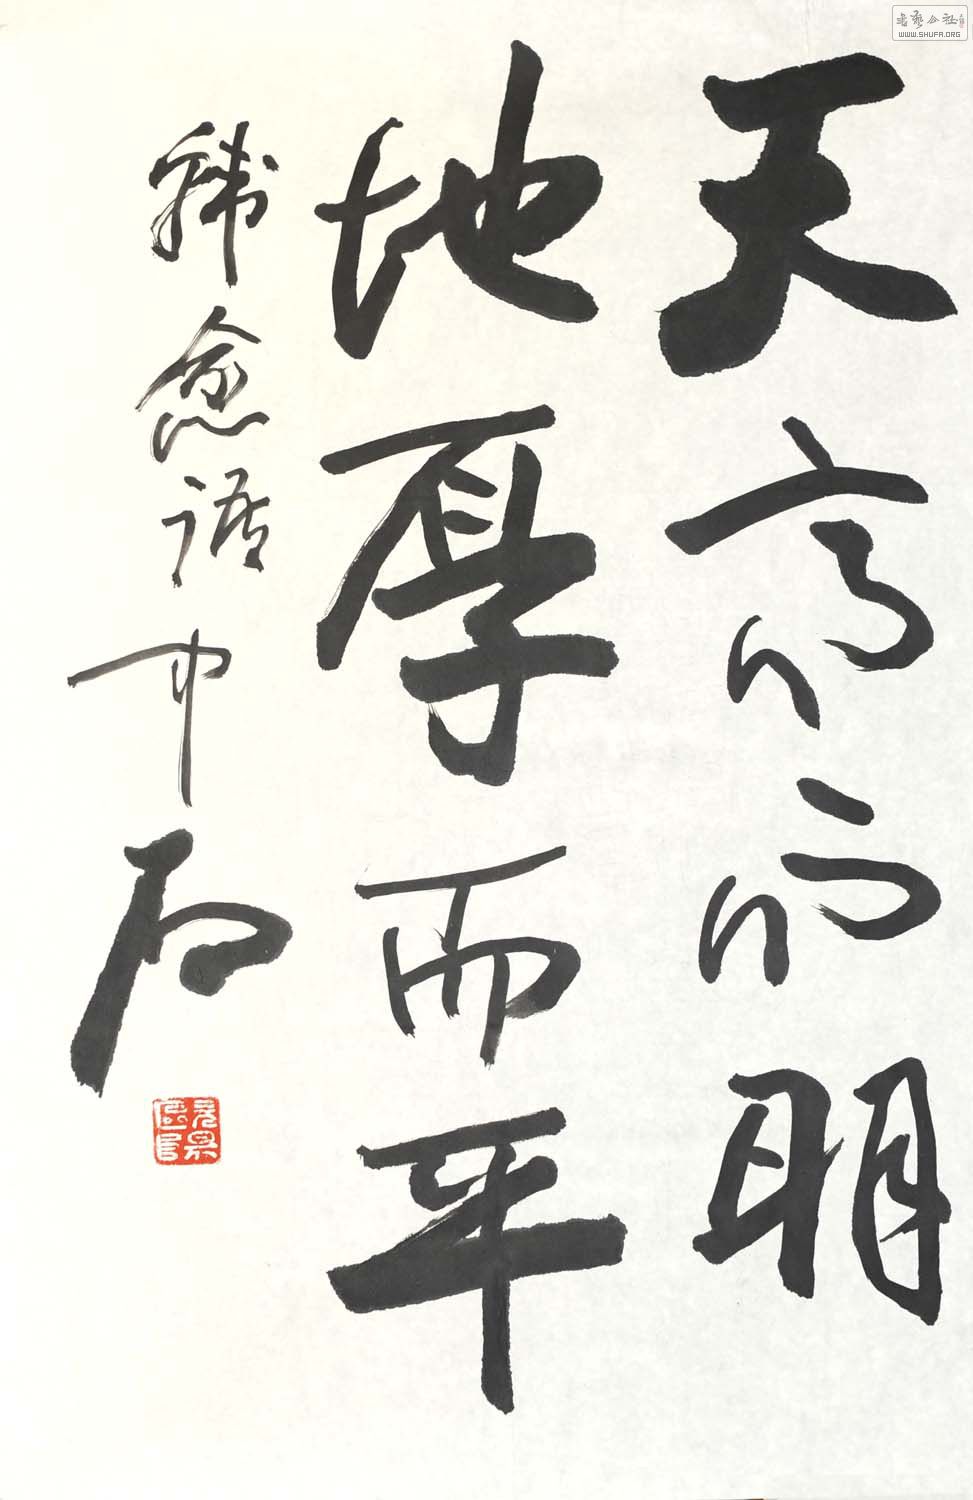 天高而明
地厚而平
韩愈语 中石
WWW.SHUFA.ORG